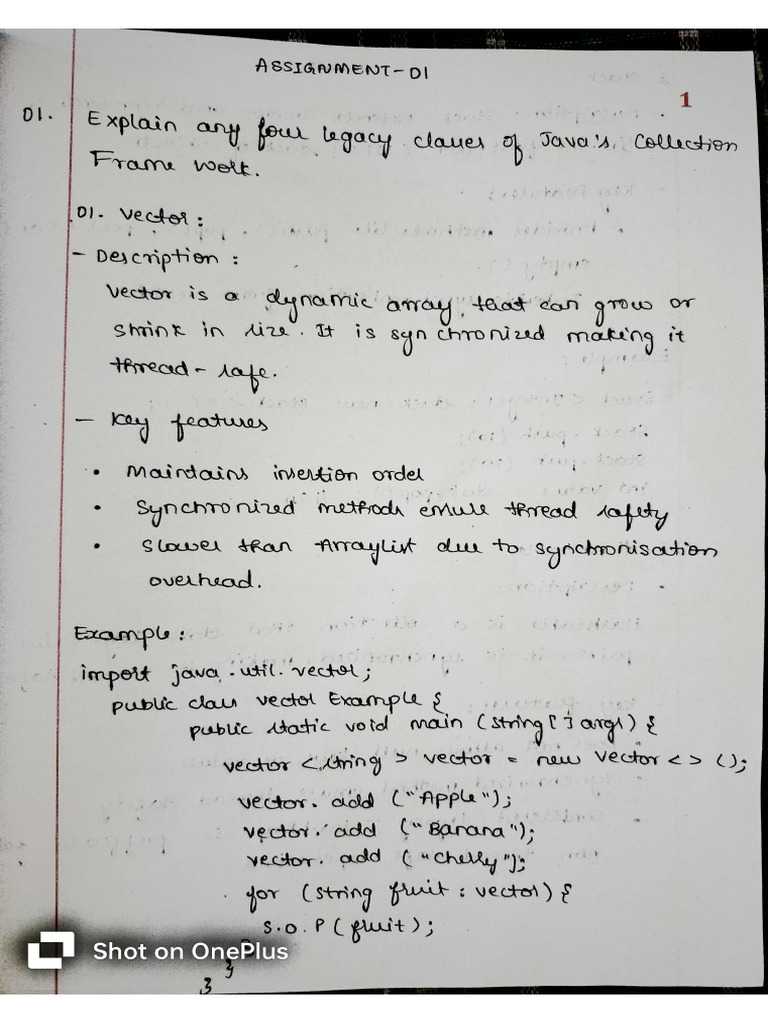 ASSIGNMENT-01
1
01. Explain any four legacy classes of Java's Collection
Frame work.
01. Vector:
- Description:
Vector is a dynamic array that can grow or
shrink in size. It is synchronized making it
thread-safe.
- Key features
• Maintains insertion order
• Synchronized methods ensure thread safety
• Slower than Arraylist due to synchronisation
overhead.
Example:
import java.util.vector;
public class vector Example {
public static void main (string[] args) {
vector <string> vector = new vector<> ();
vector. add ("Apple");
vector. add ("Banana");
vector. add ("Cherry");
for (string fruit : vector) {
S.O.P (fruit);
}
}
}
Shot on OnePlus